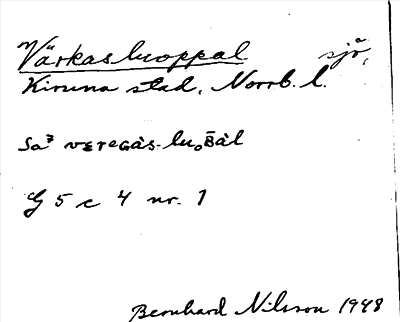 Värkasluoppal sjö,
Kiruna stad, Norrb. l.
Sa³ vɛreGàs-luₒB̄àl
G 5 c 4 nr. 1
Bernhard Nilsson 1948